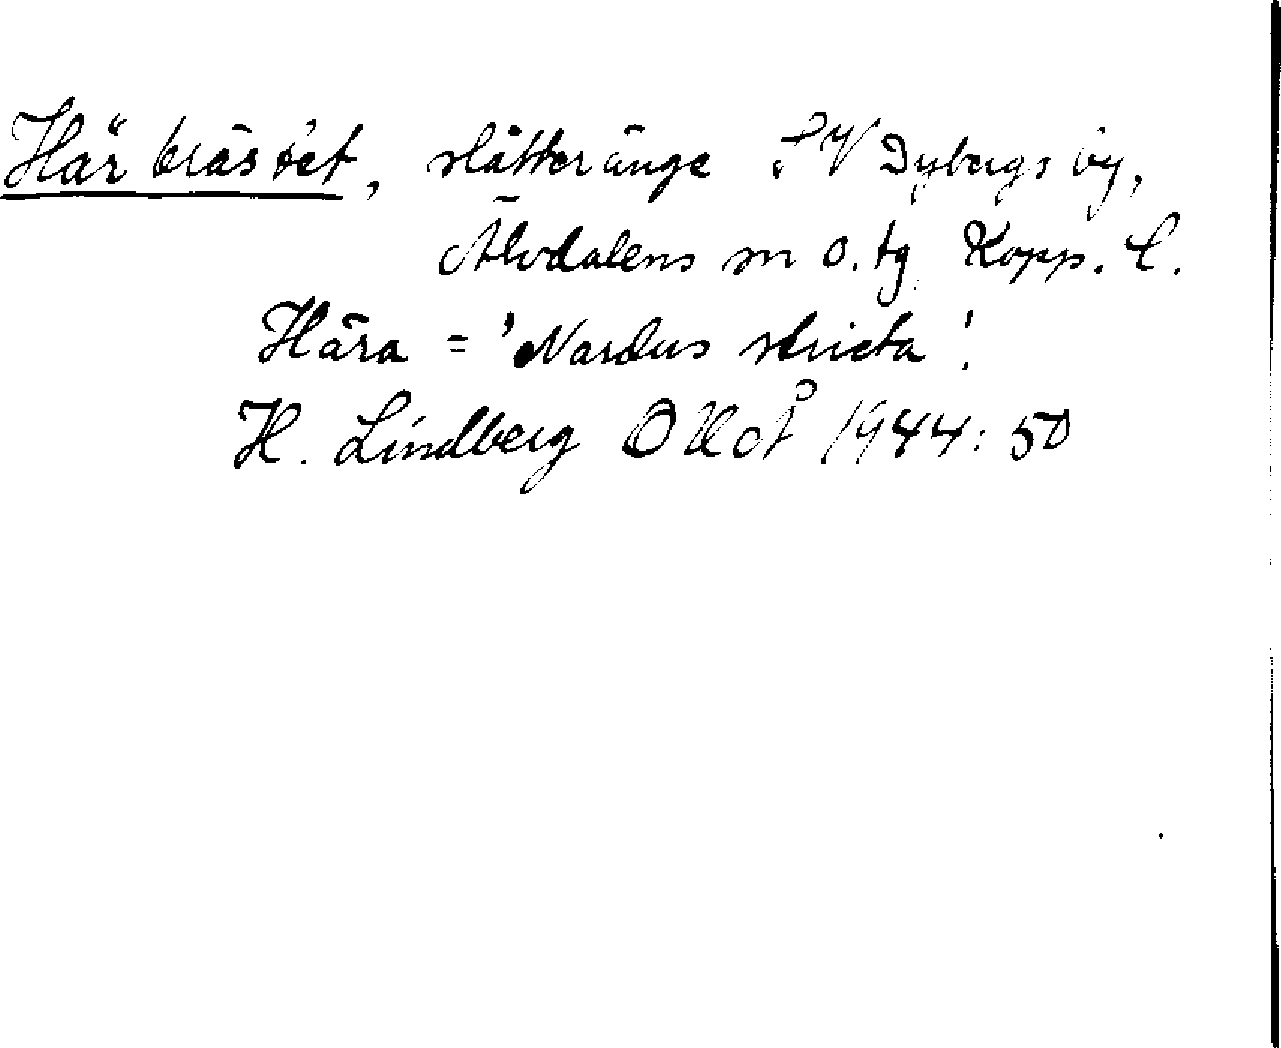 Härbrästet, slätteränge SV Dybergs by,
Älvdalens sn o. tg Kopp. l.
Hära = 'Nardus stricta'!
H. Lindberg OUoÅ 1944: 50